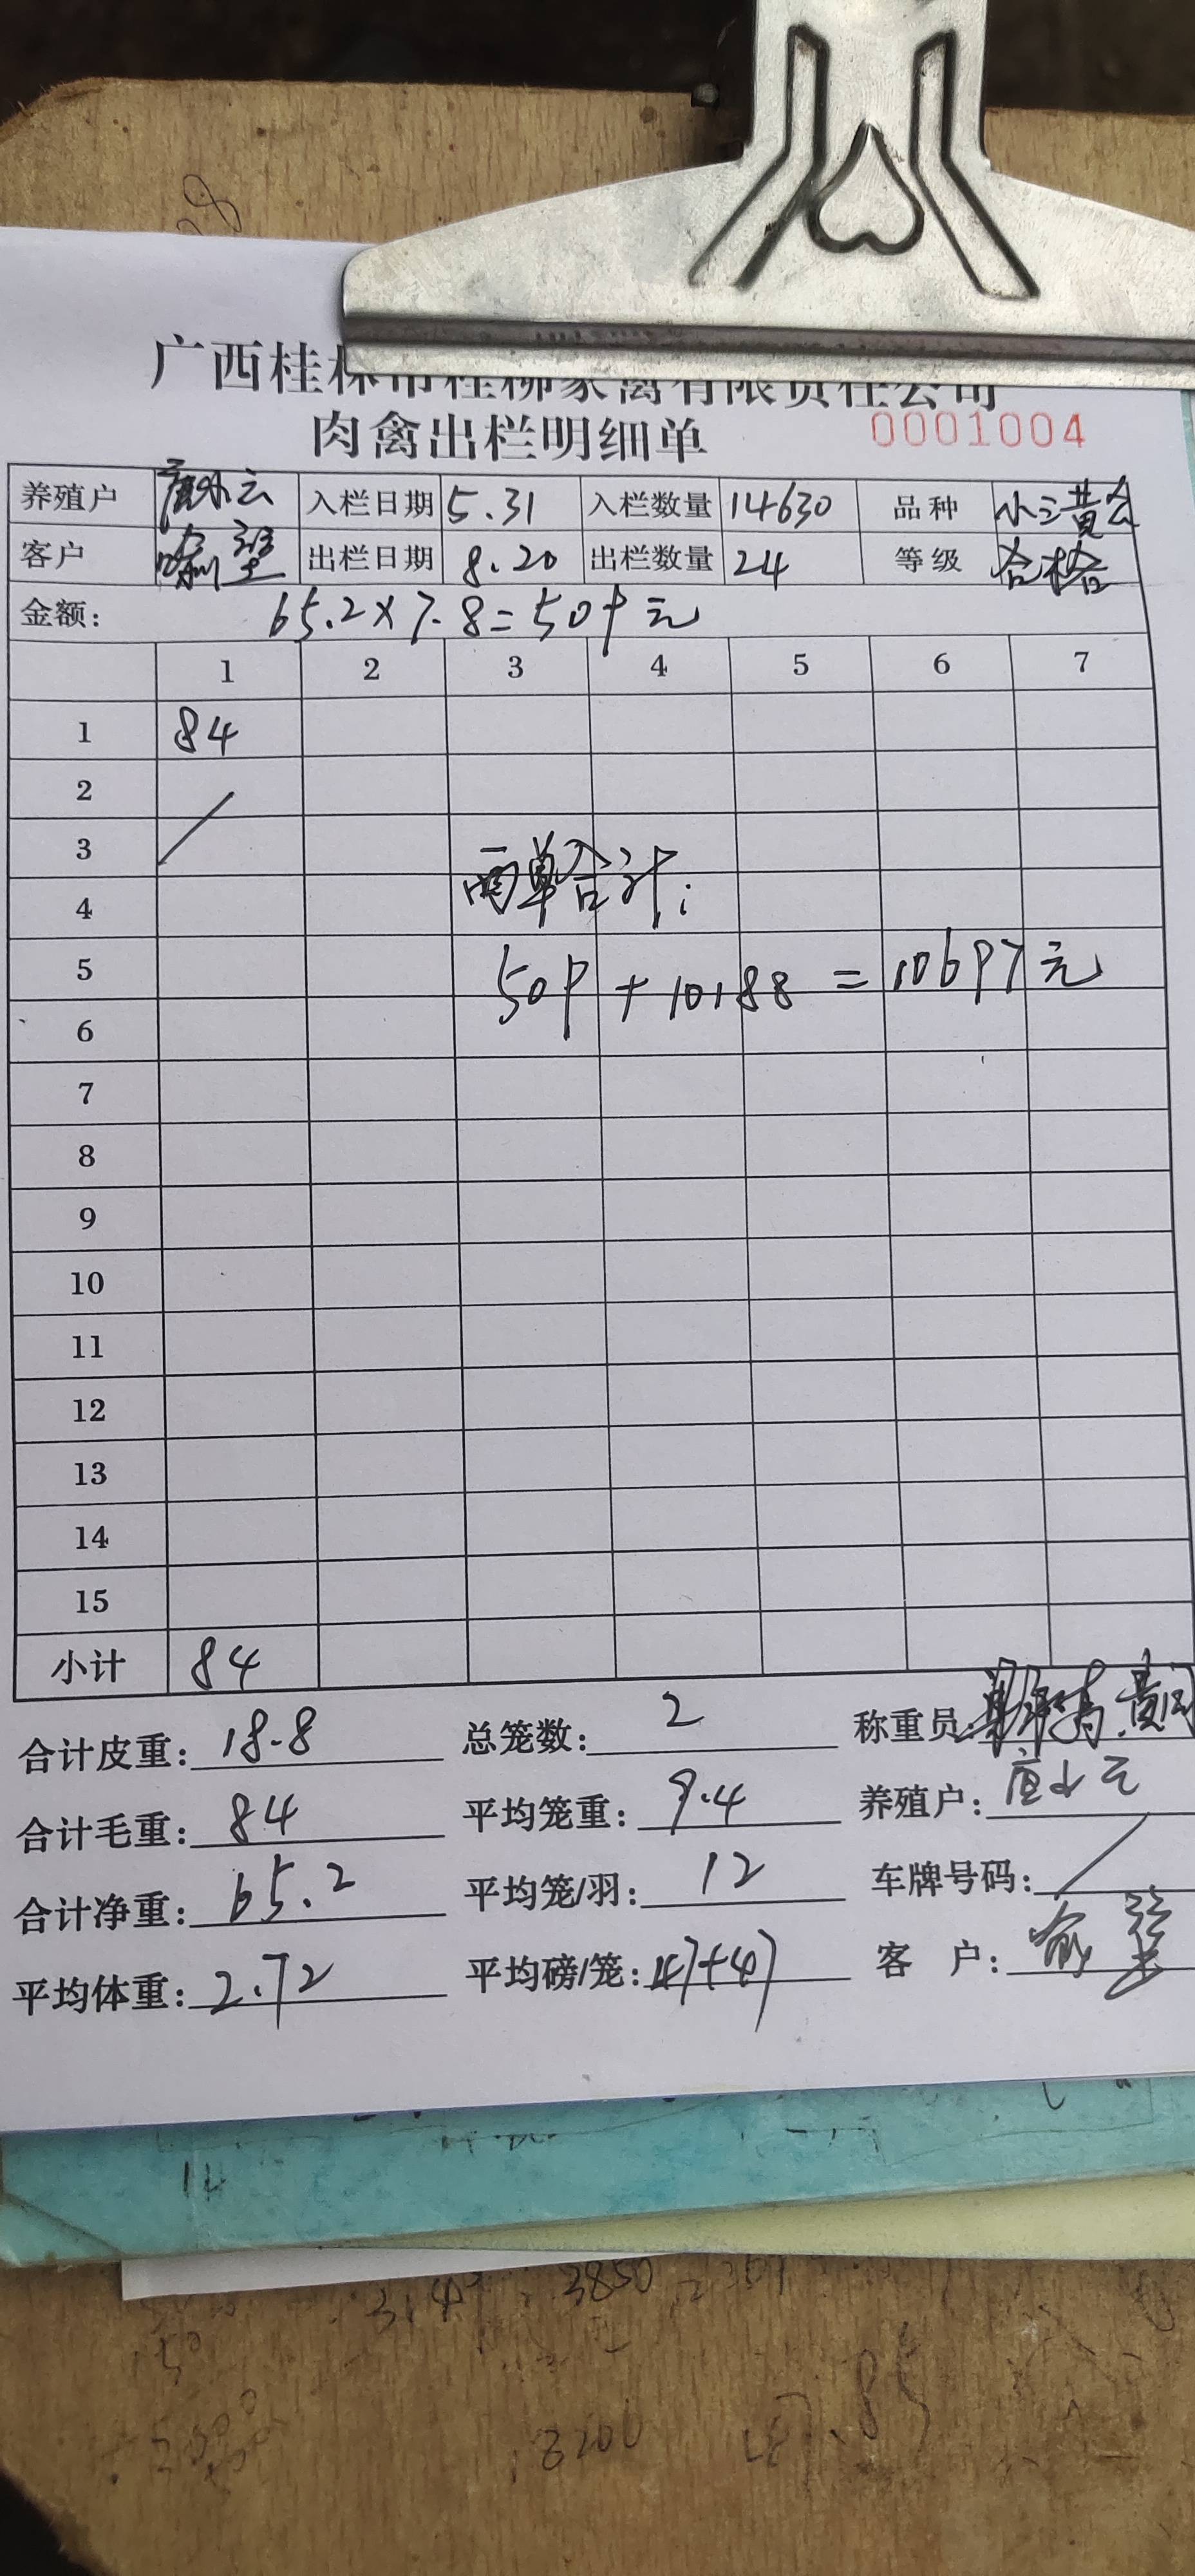 广西桂林市桂柳家禽有限责任公司
肉禽出栏明细单 0001004
养殖户 入栏日期 5.31 入栏数量 14630 品种 小三黄
客户 喻 出栏日期 8.20 出栏数量 24 等级 合格
金额: 65.2×7.8=509元
1 2 3 4 5 6 7
1 84
2
3
两单合计:
4
5 509+10188=10697元
6
7
8
9
10
11
12
13
14
15
小计 84
合计皮重: 18.8 总笼数: 2 称重员:
合计毛重: 84 平均笼重: 9.4 养殖户:
合计净重: 65.2 平均笼/羽: 12 车牌号码:
平均体重: 2.72 平均磅/笼: 47+47 客户: 喻
14
3850
3200